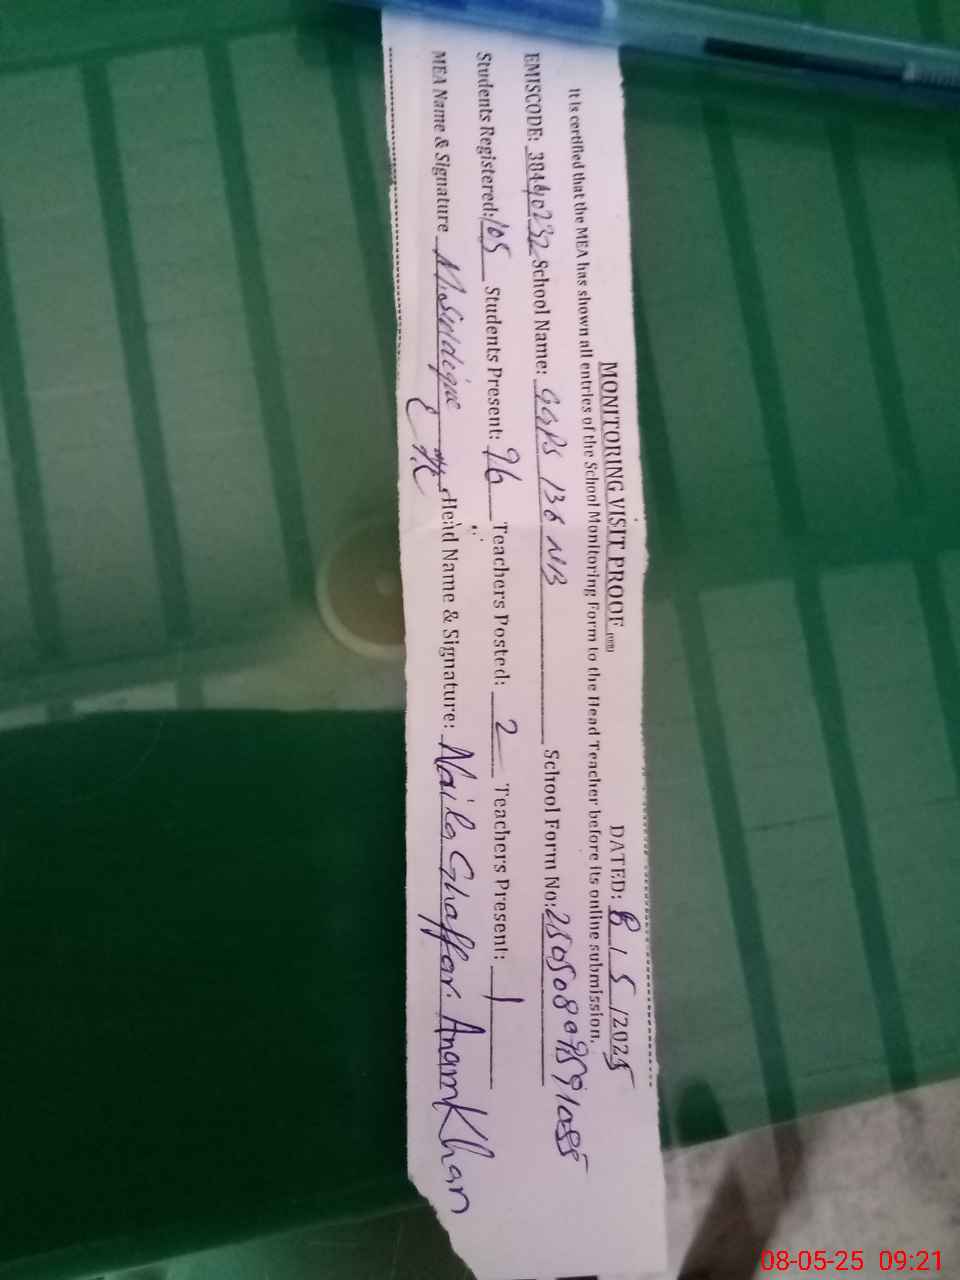 MONITORING VISIT PROOF DATED: 8 / 5 /2025
It is certified that the MEA has shown all entries of the School Monitoring Form to the Head Teacher before its online submission.
EMISCODE: 38440232 School Name: GGPS 136 NB School Form No:
Students Registered: 105 Students Present: 96 Teachers Posted: 2 Teachers Present: 1
MEA Name & Signature Head Name & Signature: Naila Ghaffar. Anam Khan
08-05-25 09:21